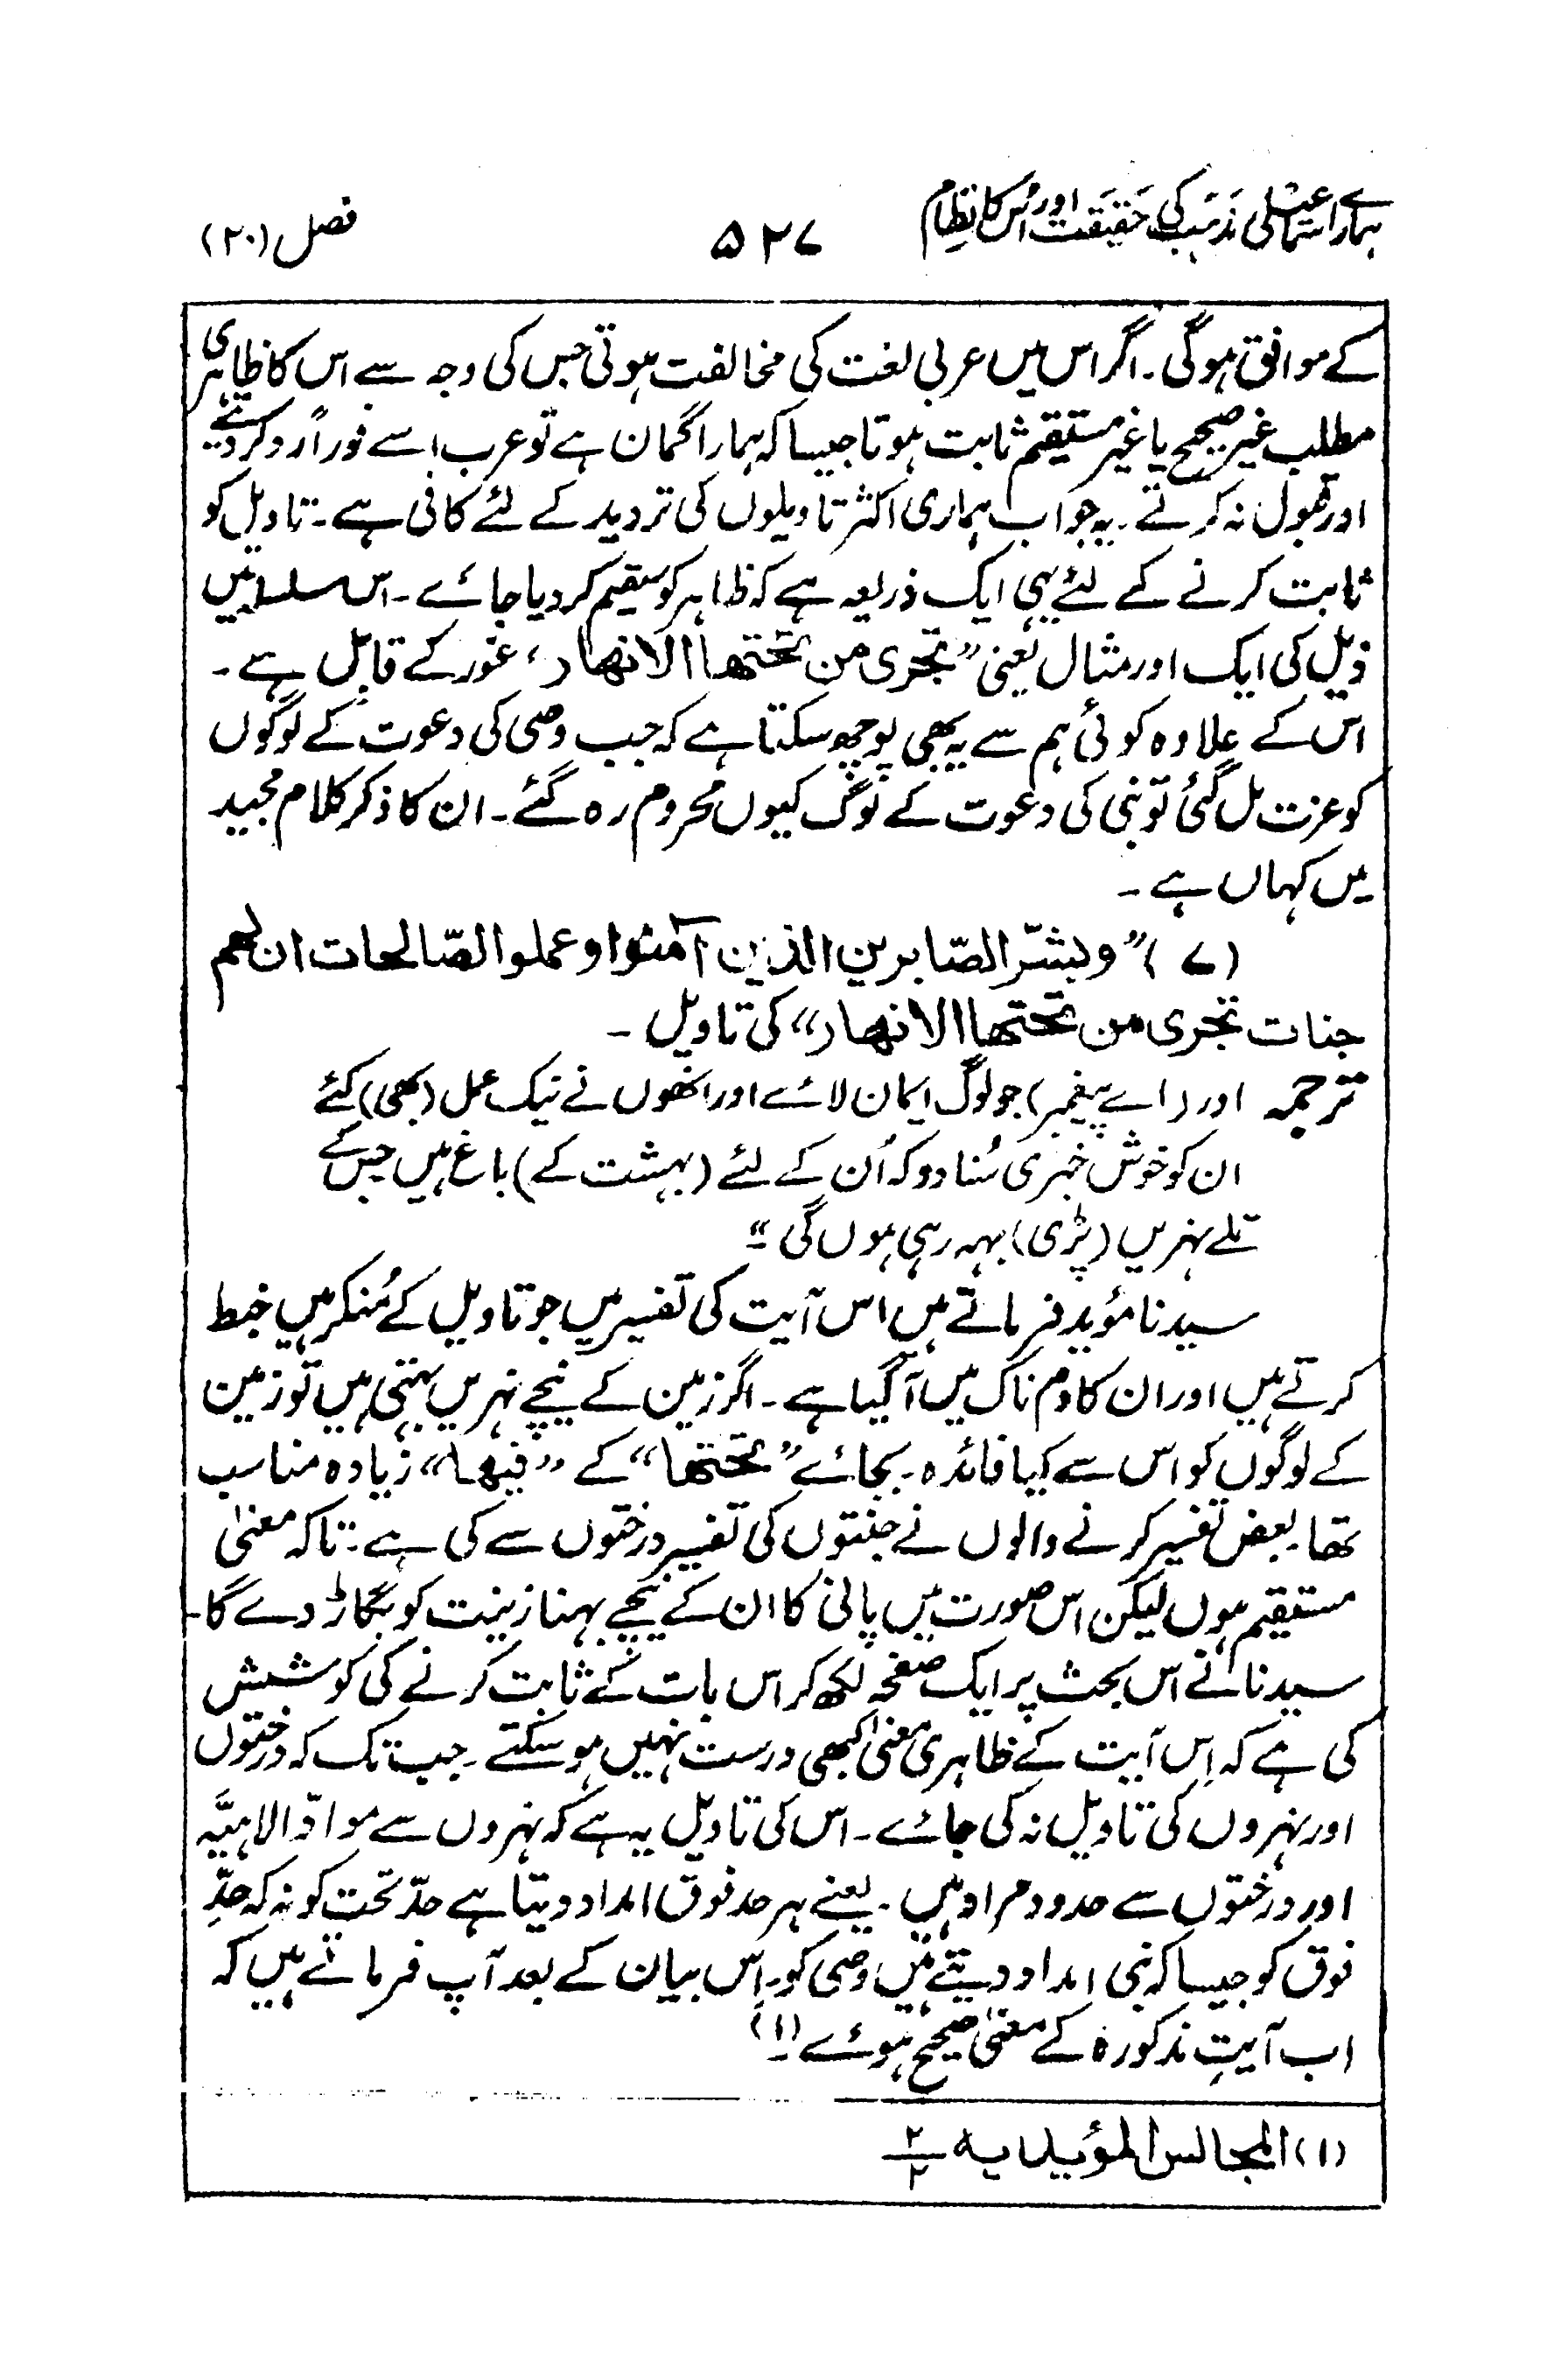 ہمارے اسماعیلی مذہب کی حقیقت اور اُس کا نظام ۵۲۷ فصل (۲۰)
کے موافق ہوگی۔ اگر اس میں عربی لغت کی مخالفت ہوتی جس کی وجہ سے اس کا ظاہری
مطلب غیر صحیح یا غیر مستقیم ثابت ہوتا جیسا کہ ہمارا گمان ہے تو عرب اسے فوراً رد کر دیتے
اور قبول نہ کرتے۔ یہ جواب ہماری اکثر تاویلوں کی تردید کے لئے کافی ہے۔ تاویل کو
ثابت کرنے کے لئے یہی ایک ذریعہ ہے کہ ظاہر کو سقیم کر دیا جائے۔ اس سلسلہ میں
ذیل کی ایک اور مثال یعنی ”تجری من تحتھا الانھار“ غور کے قابل ہے۔
اس کے علاوہ کوئی ہم سے یہ بھی پوچھ سکتا ہے کہ جب وصی کی دعوت کے لوگوں
کو عزت مل گئی تو نبی کی دعوت کے لوگ کیوں محروم رہ گئے۔ ان کا ذکر کلام مجید
میں کہاں ہے۔
(۷) ”وبشّر الصّابرین الذین آمنوا وعملوا الصّالحات ان لھم
جنات تجری من تحتھا الانھار“ کی تاویل۔
ترجمہ اور (اے پیغمبر) جو لوگ ایمان لائے اور انھوں نے نیک عمل (بھی) کئے
ان کو خوش خبری سُنا دو کہ اُن کے لئے (بہشت کے) باغ ہیں جس کے
تلے نہریں (پڑی) بہہ رہی ہوں گی“۔
سیدنا مؤید فرماتے ہیں اس آیت کی تفسیر میں جو تاویل کے مُنکر ہیں خبط
کرتے ہیں اور ان کا دم ناک میں آگیا ہے۔ اگر زمین کے نیچے نہریں بہتی ہیں تو زمین
کے لوگوں کو اس سے کیا فائدہ۔ بجائے ”تحتھا“ کے ”فیھا“ زیادہ مناسب
تھا۔ بعض تفسیر کرنے والوں نے جنتوں کی تفسیر درختوں سے کی ہے۔ تاکہ معنیٰ
مستقیم ہوں لیکن اس صورت میں پانی کا ان کے نیچے بہنا زینت کو بگاڑ دے گا۔
سیدنا نے اس بحث پر ایک صفحہ لکھ کر اس بات کے ثابت کرنے کی کوشش
کی ہے کہ اِس آیت کے ظاہری معنیٰ کبھی درست نہیں ہو سکتے۔ جب تک کہ درختوں
اور نہروں کی تاویل نہ کی جائے۔ اس کی تاویل یہ ہے کہ نہروں سے موادّ الاہیّہ
اور درختوں سے حدود مراد ہیں۔ یعنے ہر حد فوق امداد دیتا ہے حدّ تحت کو نہ کہ حدِّ
فوق کو جیسا کہ نبی امداد دیتے ہیں وصی کو۔ اِس بیان کے بعد آپ فرماتے ہیں کہ
اب آیتِ مذکورہ کے معنیٰ صحیح ہوئے۔ (۱)
(۱) المجالس المؤیدیہ ۲/۲